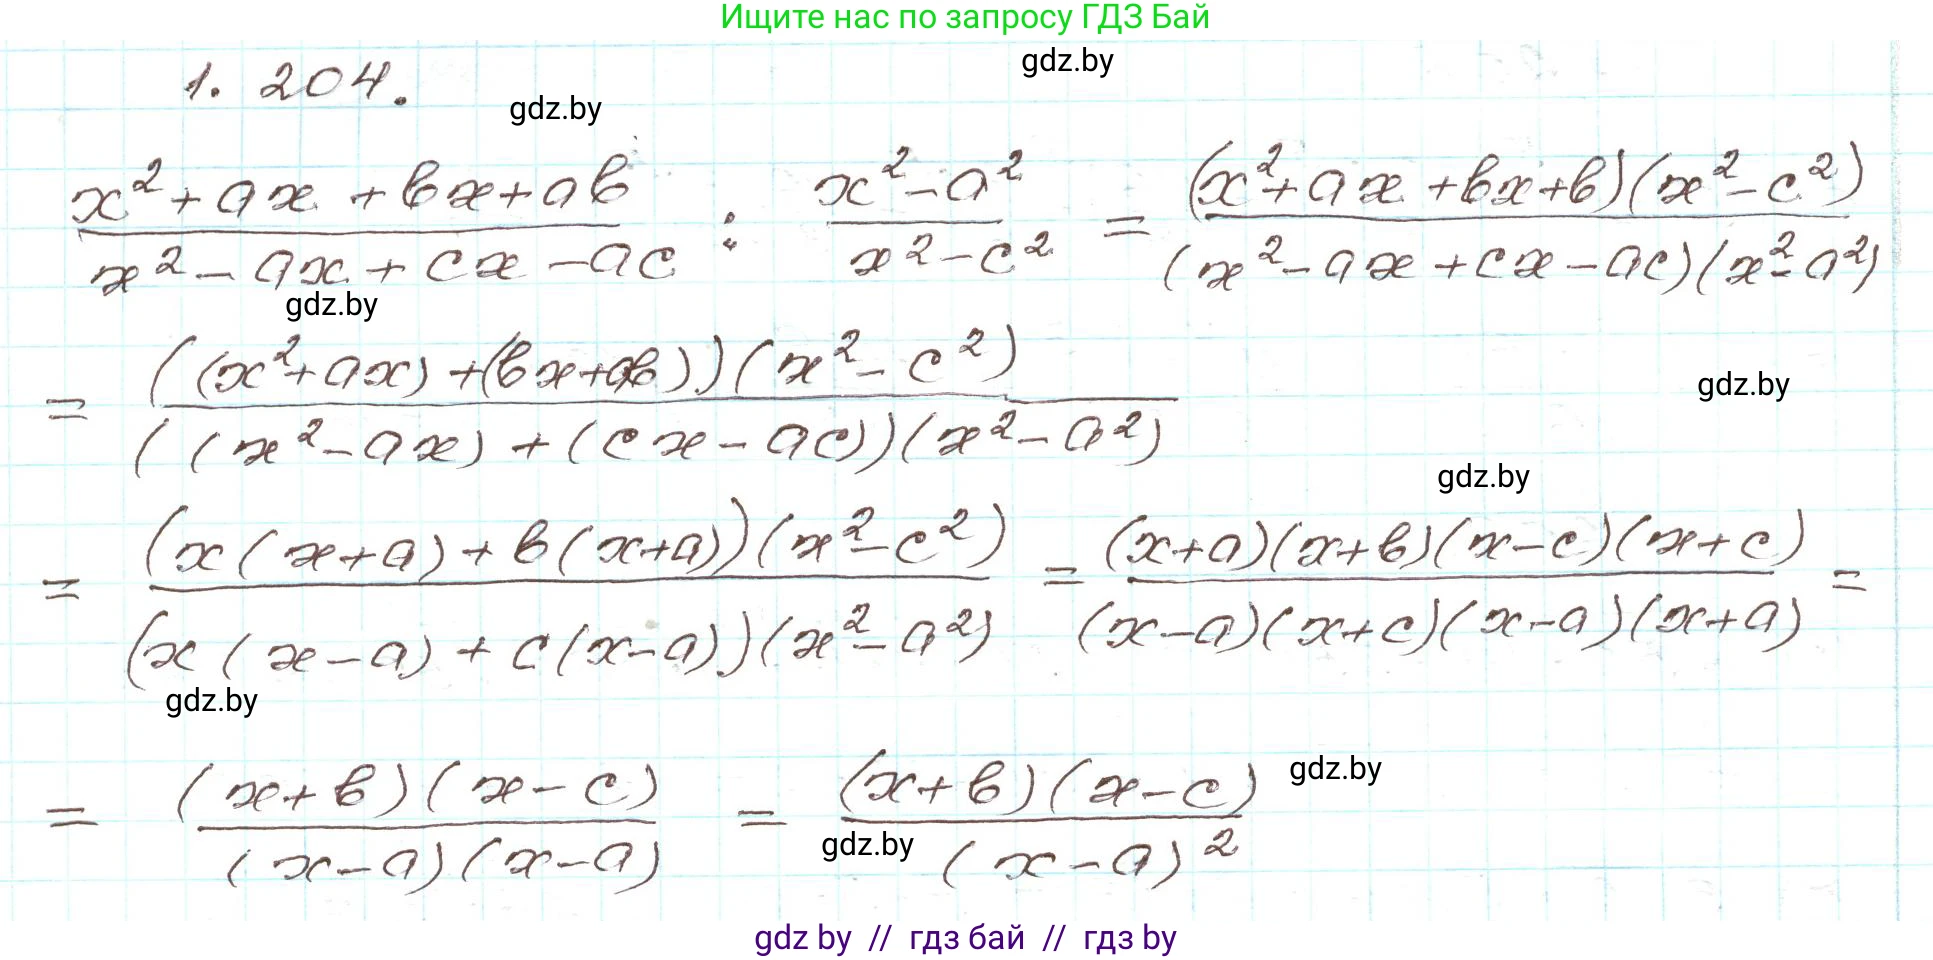 Ищите нас по запросу ГДЗ Бай
gdz.by
1. 204.
gdz.by
(x²+ax+bx+ab)/(x²-ax+cx-ac) : (x²-a²)/(x²-c²) = ((x²+ax+bx+b)(x²-c²))/((x²-ax+cx-ac)(x²-a²))
gdz.by
= (((x²+ax)+(bx+ab))(x²-c²))/(((x²-ax)+(cx-ac))(x²-a²))
gdz.by
gdz.by
= ((x(x+a)+b(x+a))(x²-c²))/((x(x-a)+c(x-a))(x²-a²)) = ((x+a)(x+b)(x-c)(x+c))/((x-a)(x+c)(x-a)(x+a)) =
gdz.by
= ((x+b)(x-c))/((x-a)(x-a)) = ((x+b)(x-c))/((x-a)²)
gdz.by
gdz.by
gdz by // гдз бай // гдз by